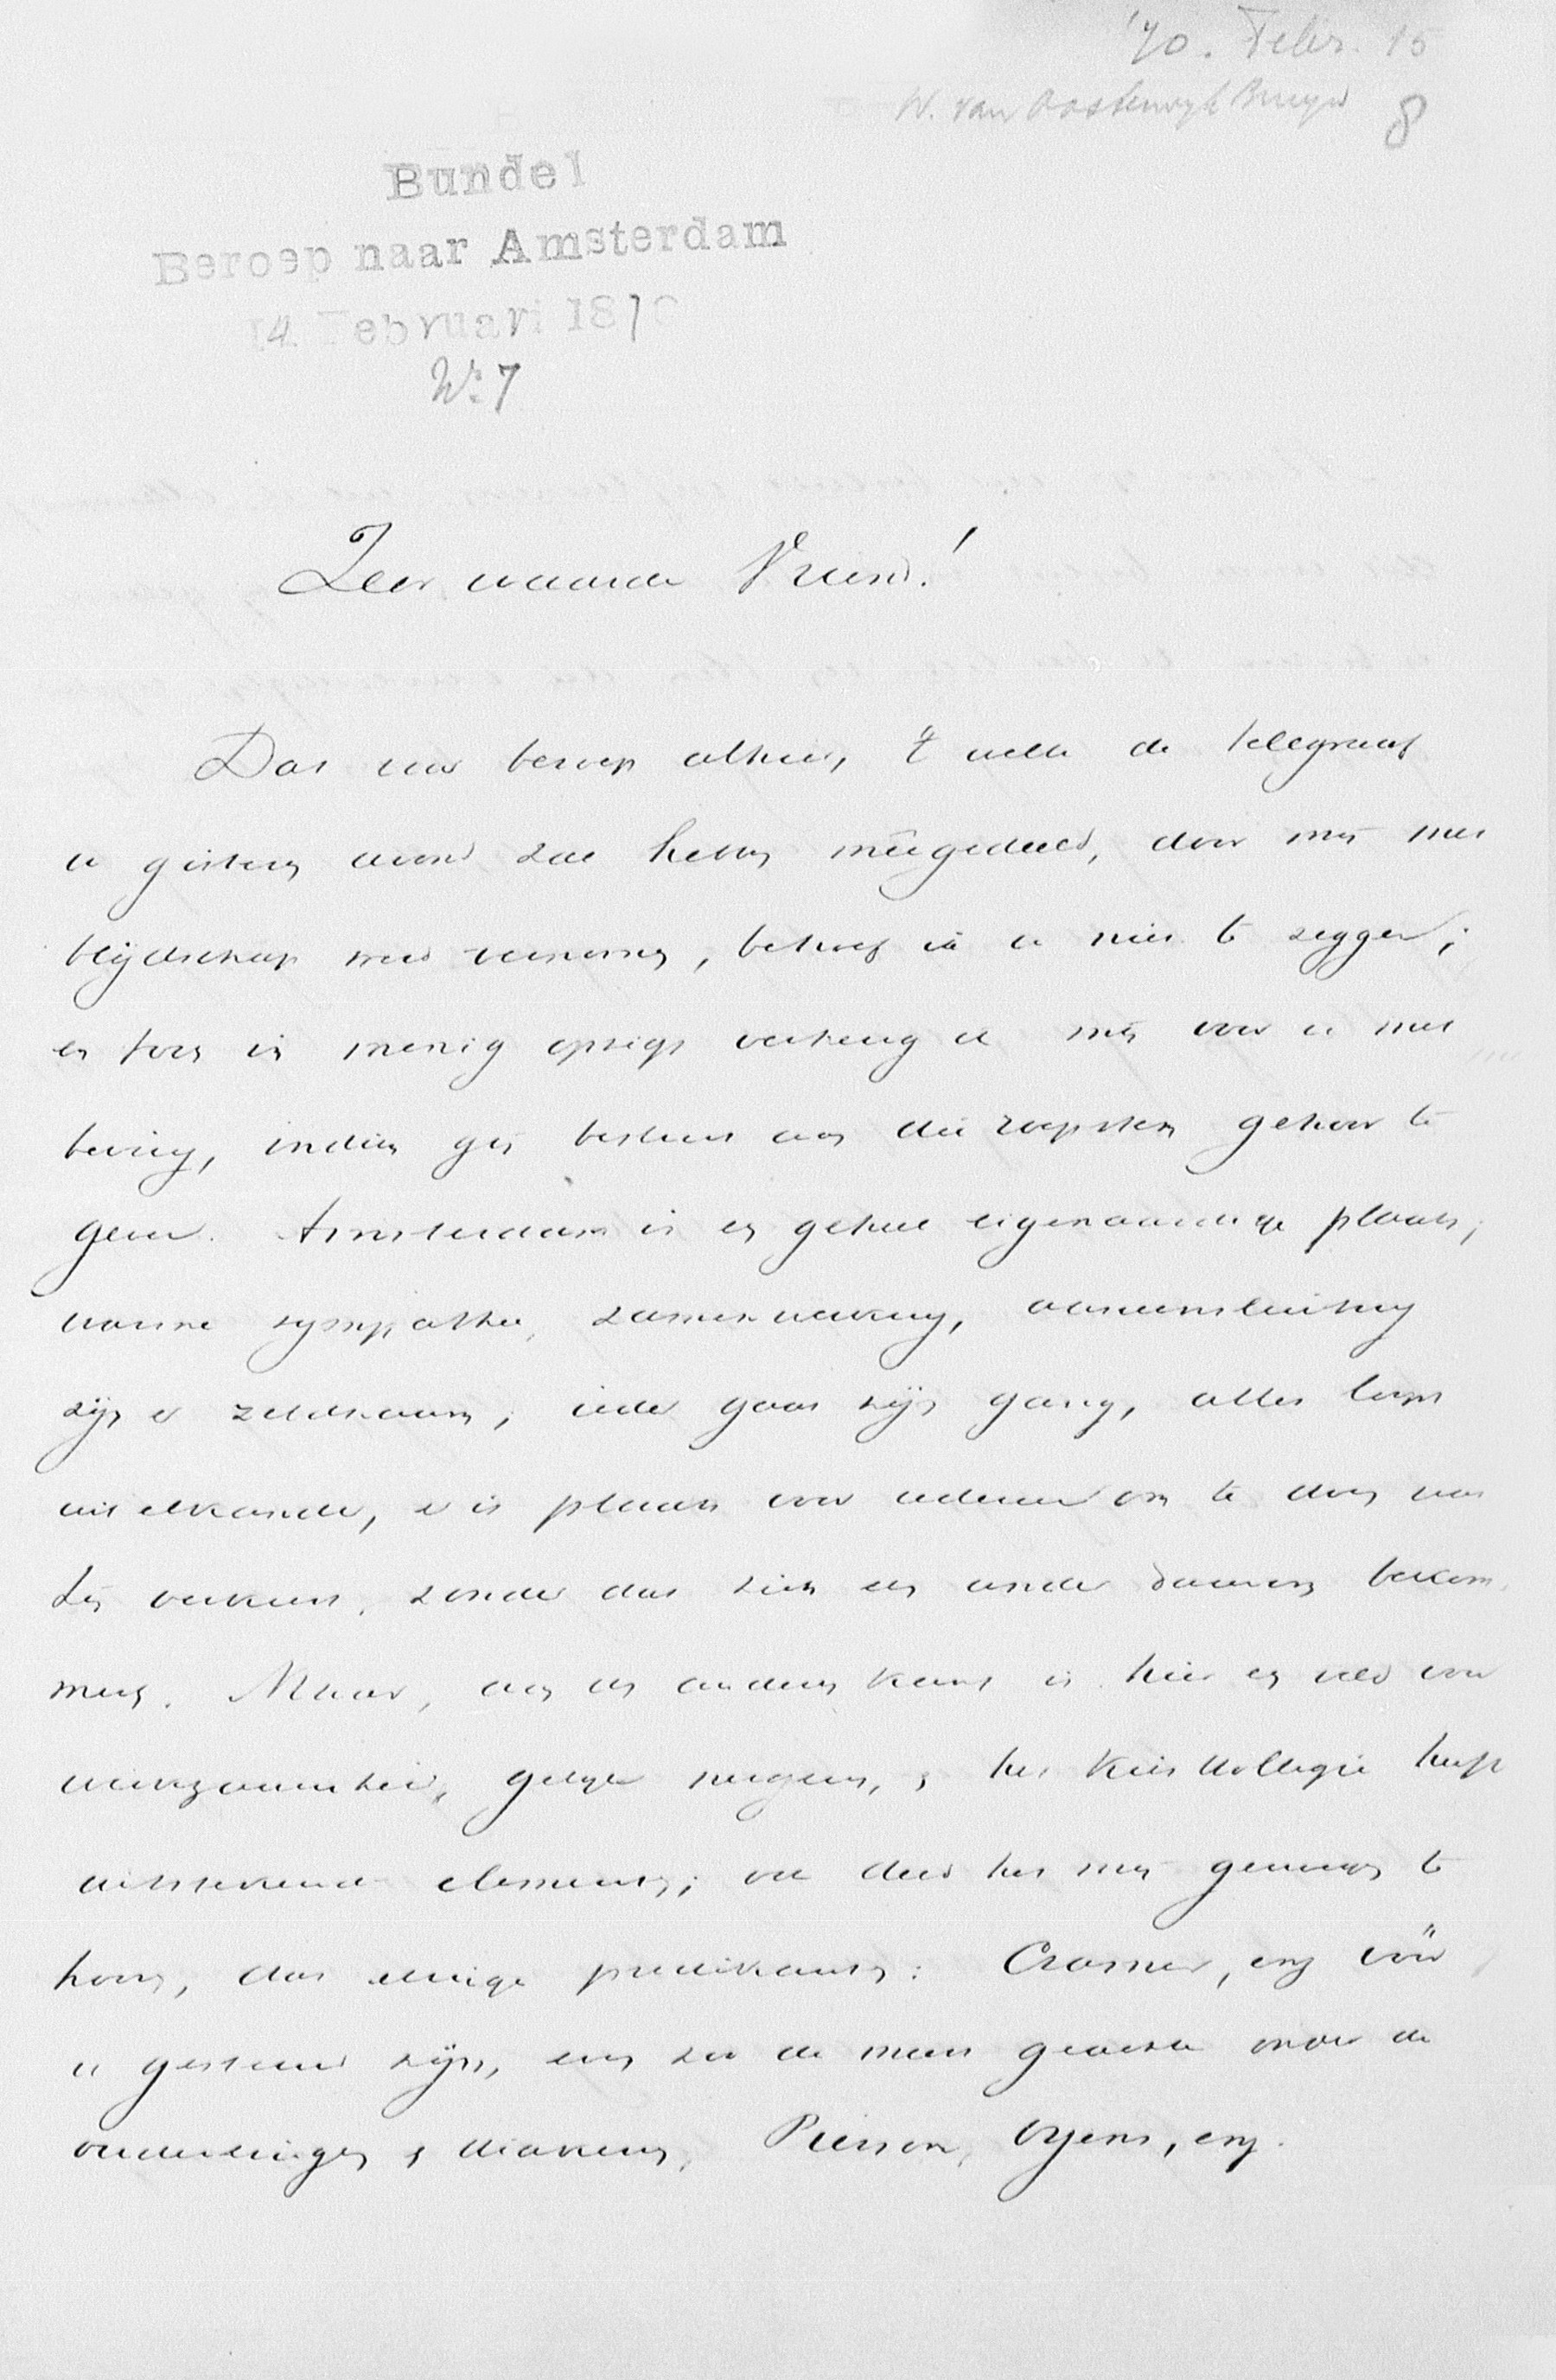 '70. Febr. 15
W. van Oosterwijk Bruyn 8
Bundel
Beroep naar Amsterdam
14 Februari 1870
No 7
Zeer waarde Vriend!
Dat uw beroep alhier, 't welk de telegraaf
u gisteren avond zal hebben meêgedeeld, door mij met
blijdschap werd vernomen, behoef ik u niet te zeggen;
en toch in menig opzigt verheug ik mij voor u met
beving, indien gij besluit aan die roepstem gehoor te
geven. Amsterdam is een geheel eigenaardige plaats,
warme sympathie, zamenwerking, aaneensluiting
zijn er zeldzaam; ieder gaat zijn gang, alles loopt
uit elkander, er is plaats voor iedereen om te doen wat
hij verkiest, zonder dat zich een ander daarom bekom
mert. Maar, aan den anderen kant is hier een veld voor
werkzaamheid, gelijk nergens, & het Kiescollegie heeft
uitstekende elementen; ook deed het mij genoegen te
hooren, dat eenige predikanten: Cramer, enz vóór
u gestemd zijn, even zoo de meest geachte onder de
ouderlingen & diakenen, Pierson, Oyens, enz.